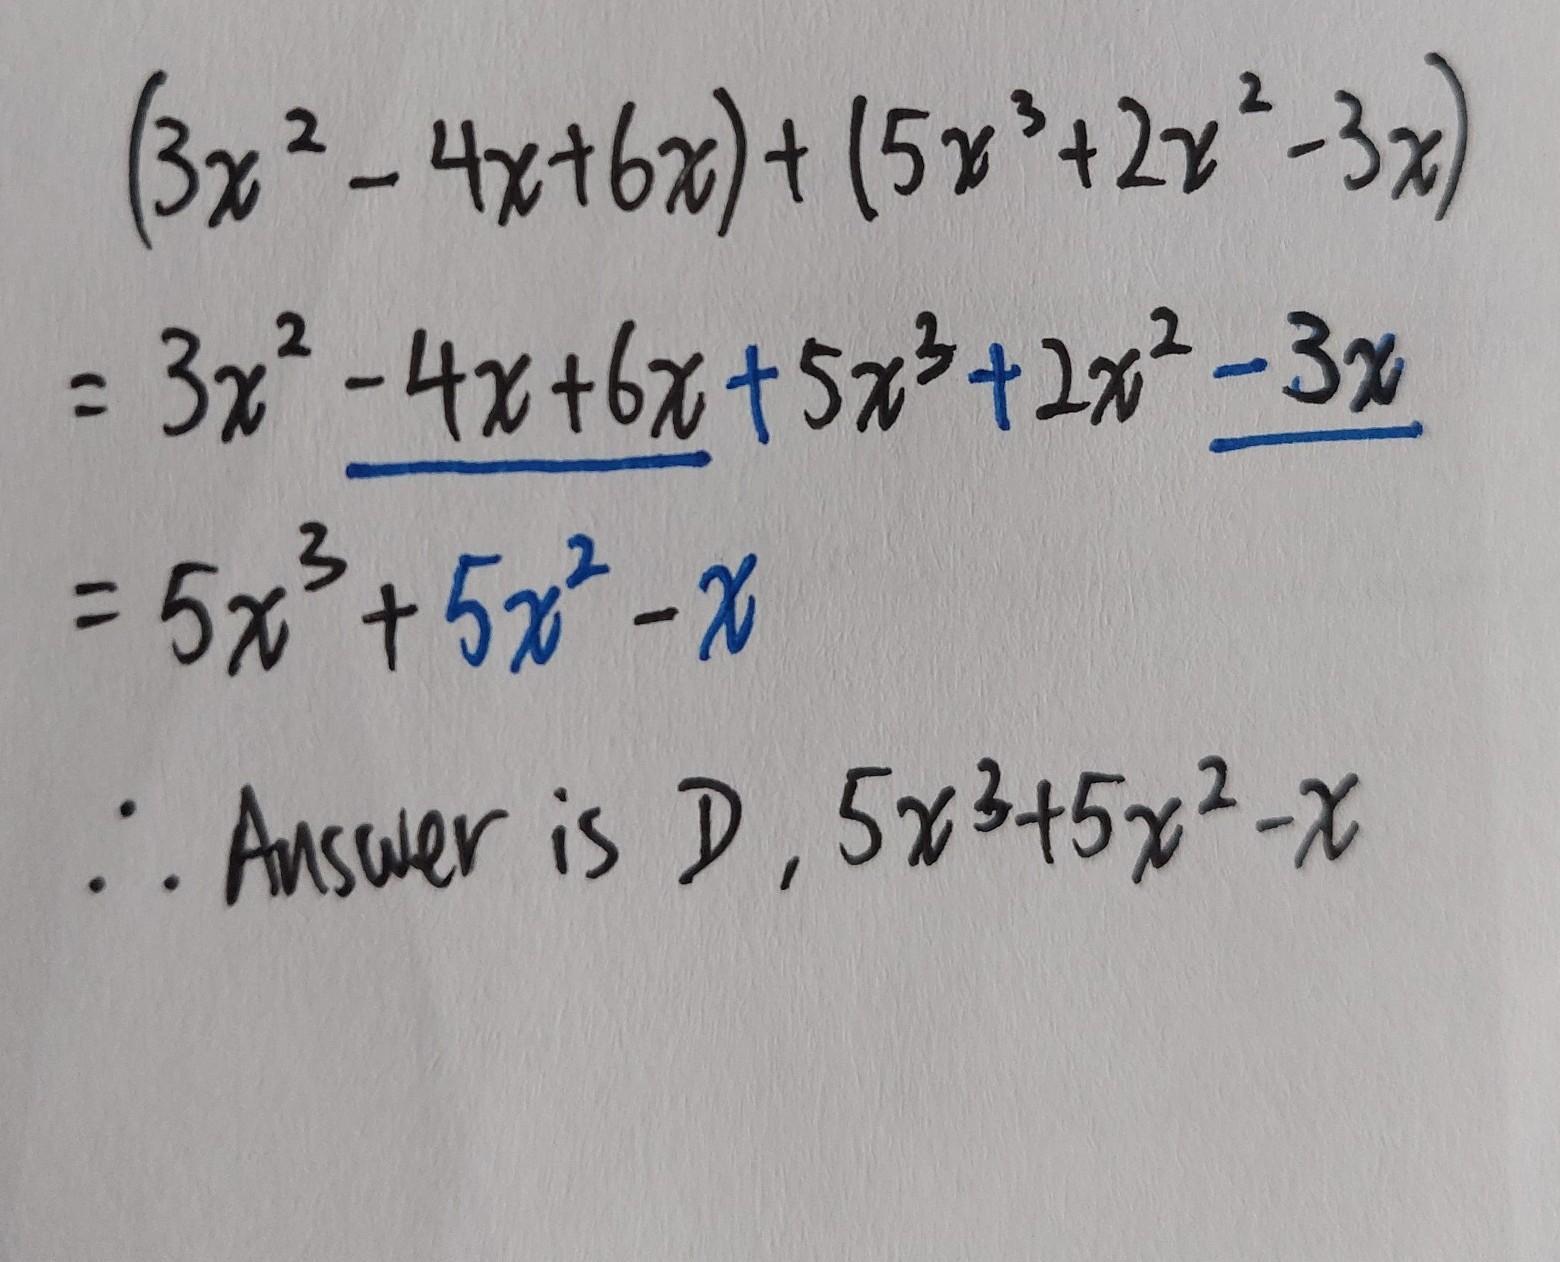 (3x² - 4x + 6x) + (5x³ + 2x² - 3x)
= 3x² - 4x + 6x + 5x³ + 2x² - 3x
= 5x³ + 5x² - x
∴ Answer is D, 5x³ + 5x² - x